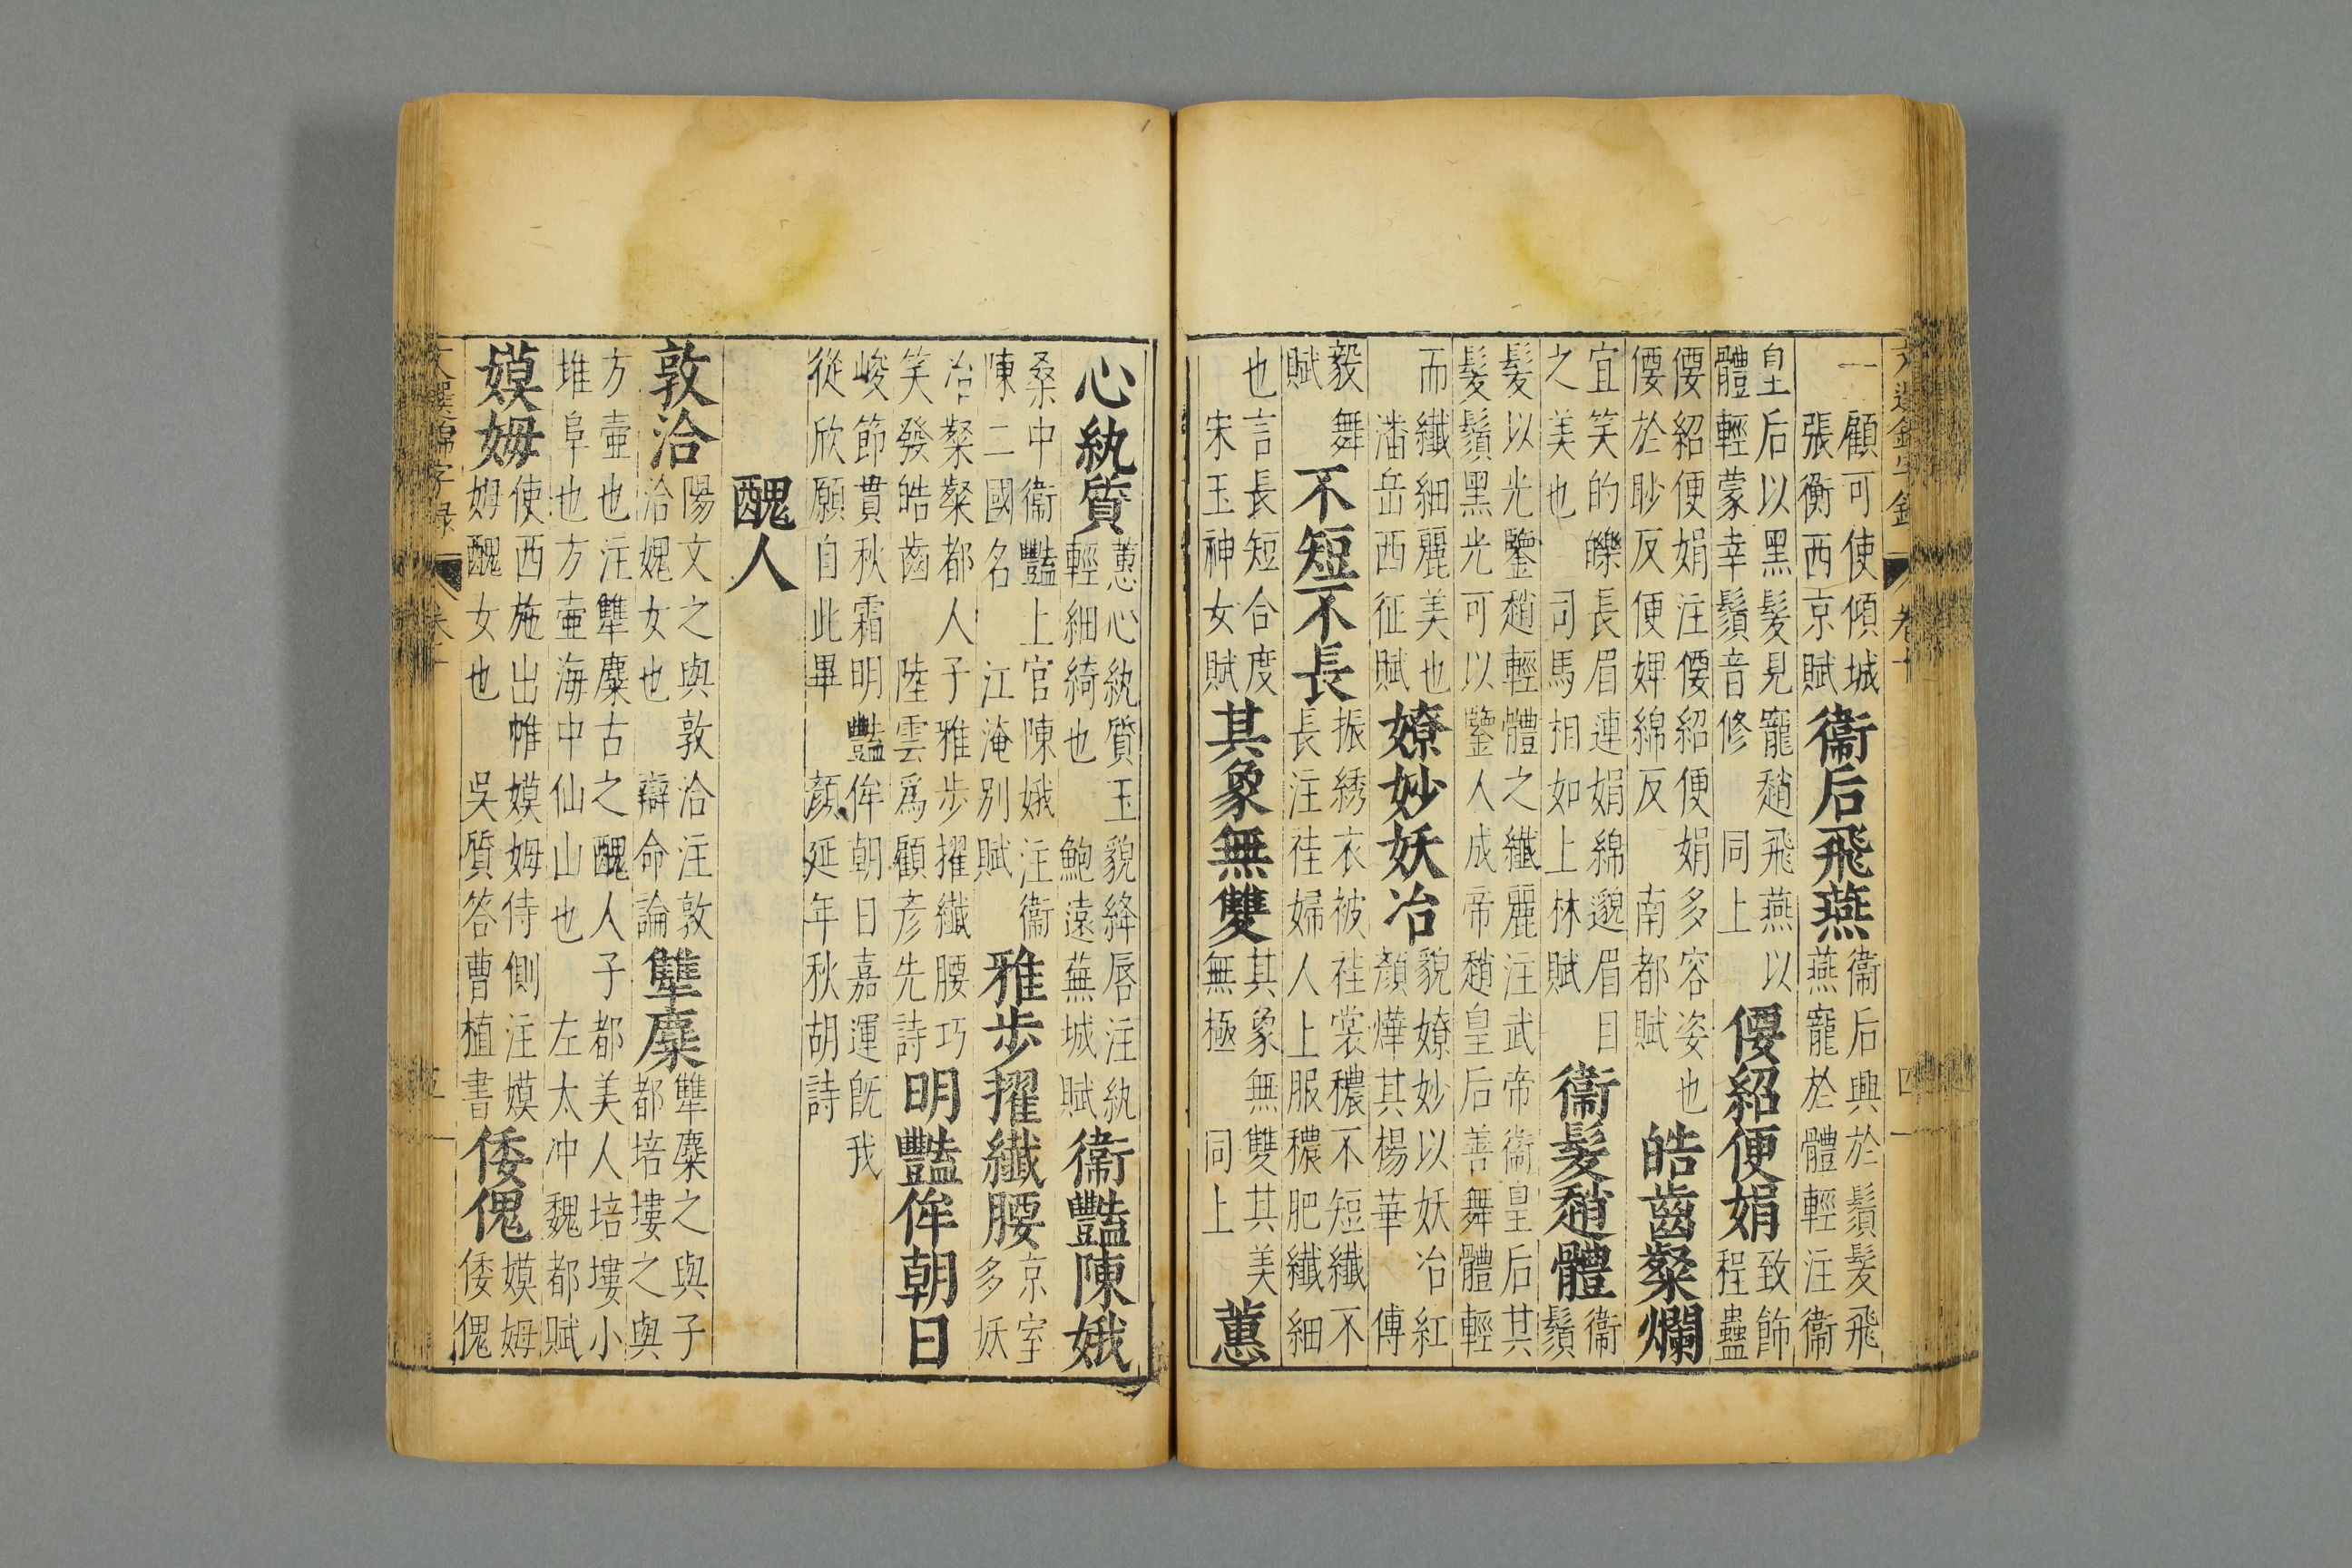 一顧可使傾城
張衡西京賦
衞后飛燕
衞后興於鬒髮飛
燕寵於體輕注衞
皇后以黑髮見寵趫飛燕以
體輕蒙幸鬒音修 同上
偠紹便娟
致飾
程蠱
偠紹便娟注偠紹便娟多容姿也
偠於眇反便婢綿反 南都賦
皓齒粲爛
宜笑的皪長眉連娟綿邈眉目
之美也 司馬相如上林賦
衞髮趫體
衞
鬒
髮以光鑒趫輕體之纖麗注武帝衞皇后其
髮鬒黑光可以鑒人成帝趫皇后善舞體輕
而纖細麗美也
潘岳西征賦
嫽妙妖冶
貌嫽妙以妖冶紅
顏燁其楊華 傅
毅舞
賦
不短不長
振綉衣被袿裳穠不短纖不
長注袿婦人上服穠肥纖細
也言長短合度
宋玉神女賦
其象無雙
其象無雙其美
無極 同上
蕙
心紈質
蕙心紈質玉貌絳唇注紈
輕細綺也 鮑遠蕪城賦
衞豔陳娥
桑中衞豔上官陳娥注衞
陳二國名 江淹別賦
雅步擢纖腰
京室
多妖
冶粲粲都人子雅步擢纖腰巧
笑發皓齒 陸雲爲顧彥先詩
明豔侔朝日
峻節貫秋霜明豔侔朝日嘉運旣我
從欣願自此畢 顏延年秋胡詩
醜人
敦洽
陽文之與敦洽注敦
洽媿女也 辯命論
犨麋
犨麋之與子
都培塿之與
方壷也注犨麋古之醜人子都美人培塿小
堆阜也方壷海中仙山也 左太冲魏都賦
嫫姆
使西施出帷嫫姆侍側注嫫
姆醜女也 吳質答曹植書
倭傀
嫫姆
倭傀